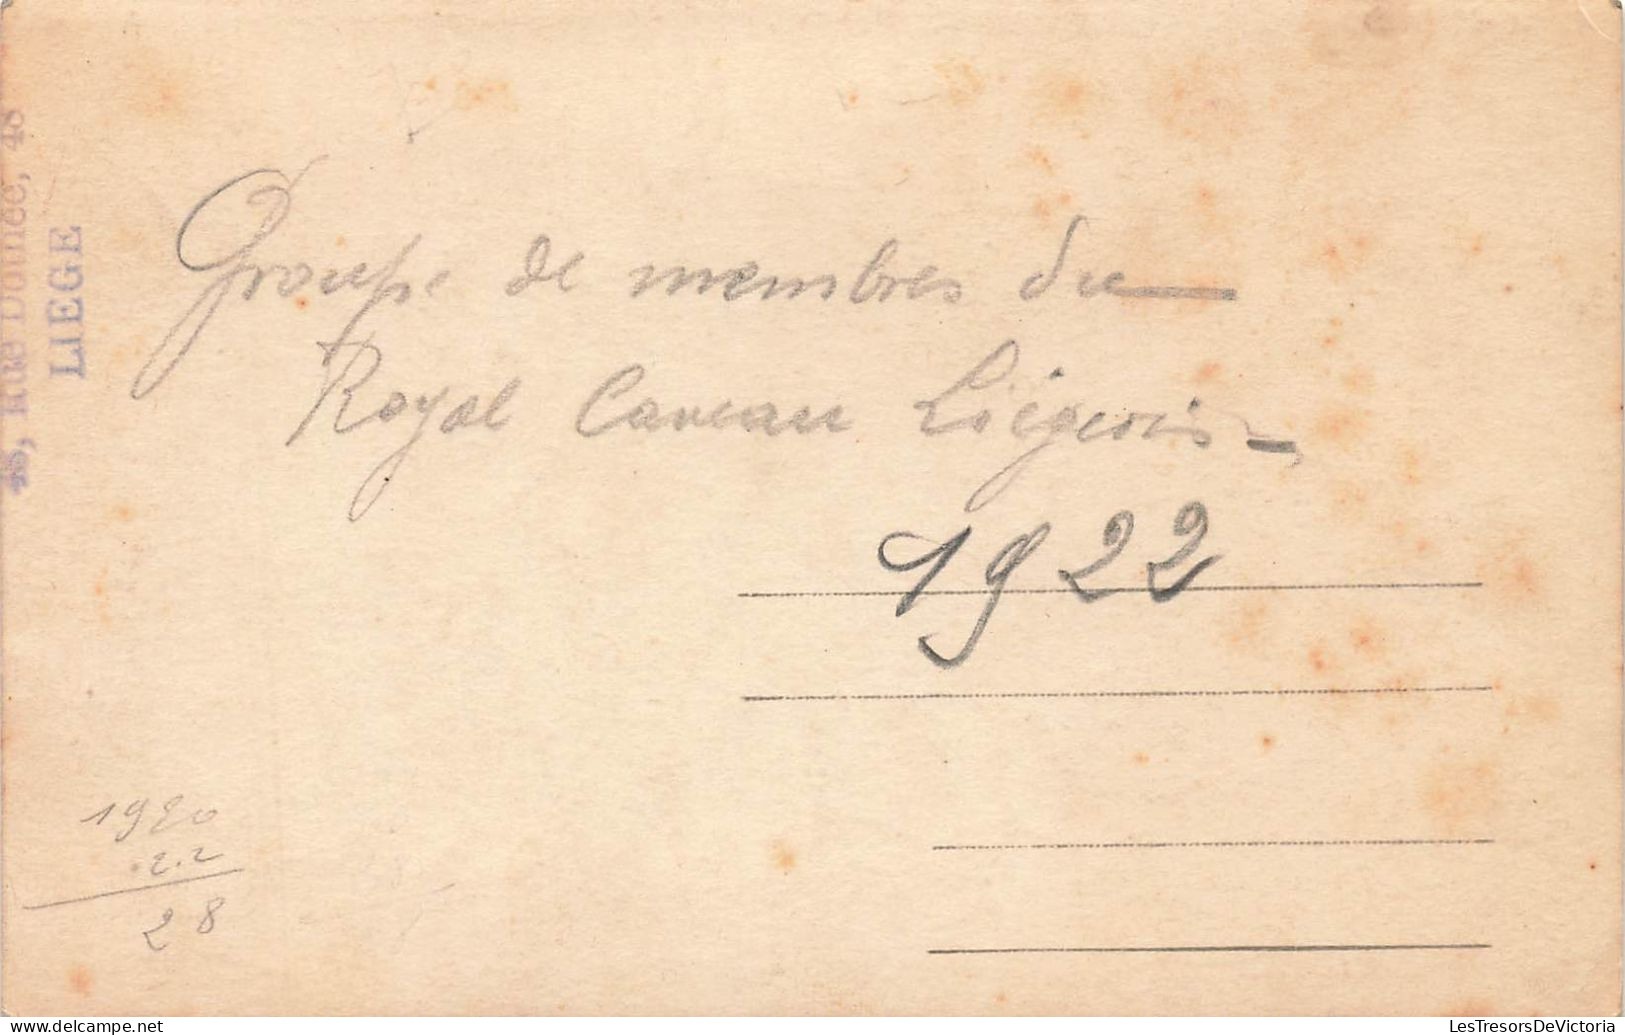 48, Rue Donnée, 48
LIEGE
Groupe de membres du
Royal Caveau Liégeois
1922
22
28
www.delcampe.net
LesTresorsDeVictoria